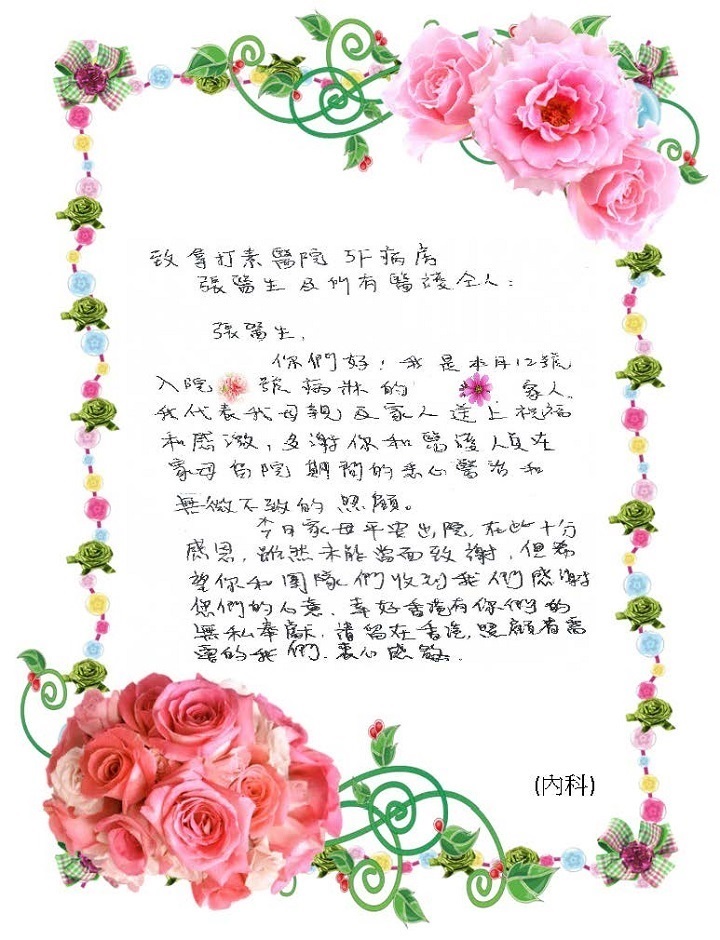 致拿打素醫院 5F病房
張醫生及所有醫護仝人:
張醫生,
你們好! 我是本月12號
入院 號病淋的 家人.
我代表我母親及家人送上祝福
和感激,多謝你和醫護人員在
家母留院期間的悉心醫治和
無微不致的照顧。
今日家母平安出院,在此十分
感恩,雖然未能當面致謝,但希
望你和團隊們收到我們感謝
您們的心意、幸好香港有你們的
無私奉獻,請留在香港,照顧有需
要的我們.衷心感謝.
(內科)